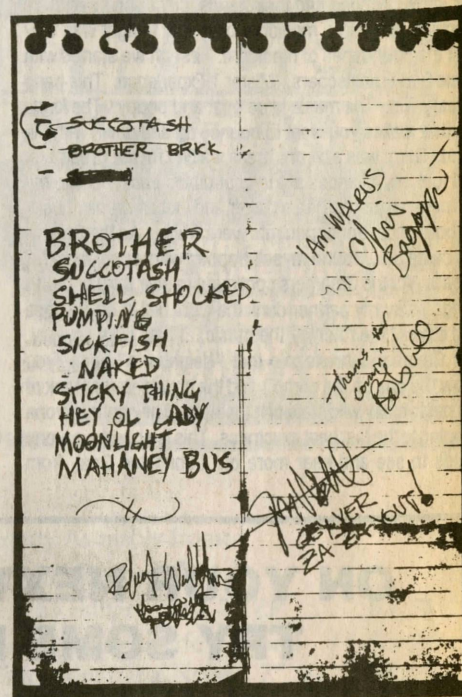 SUCCOTASH
BROTHER BRICK
BROTHER
SUCCOTASH
SHELL SHOCKED
PUMPING
SICKFISH
NAKED
STICKY THING
HEY OL LADY
MOONLIGHT
MAHANEY BUS
I AM WALRUS
Chris
Thanks for
coming
Bob Lee
OLIVER
ZA ZA YOUT!